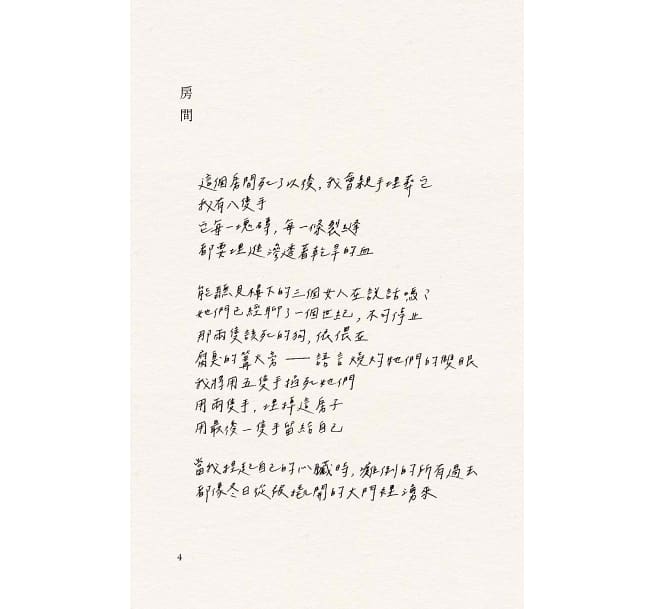 房間
這個房間死了以後,我會親手埋葬它
我有八隻手
它每一塊磚,每一條裂縫
都要埋進滲透著乾旱的血
能聽見樓下的三個女人在說話嗎?
她們已經聊了一個世紀,不可停止
那兩隻該死的狗,依偎在
腐臭的篝火旁——語言燒灼她們的雙眼
我將用五隻手掐死她們
用兩隻手,埋掉這房子
用最後一隻手留給自己
當我捏起自己的心臟時,癱倒的所有過去
都像冬日從被撬開的大門裡湧來
4